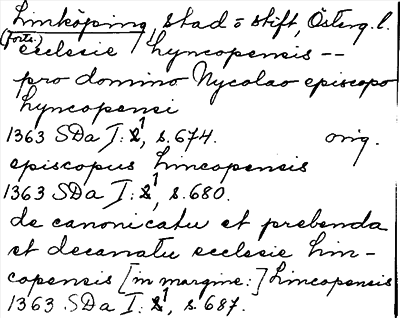 Linköping, stad o stift, Österg. l.
(forts.)
ecclesie lyncopensis --
pro domino Nycolao episcopo
lyncopensi
1363 SDa I: 1, s. 674. orig.
episcopus lincopensis
1363 SDa I: 1, s. 680.
de canonicatu et prebenda
et decanatu ecclesie lin-
copensis [in margine:] lincopensis
1363 SDa I: 1, s. 687.